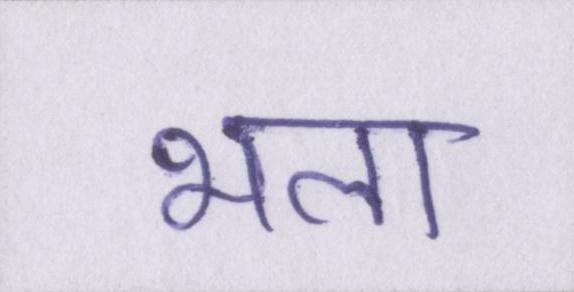 भला